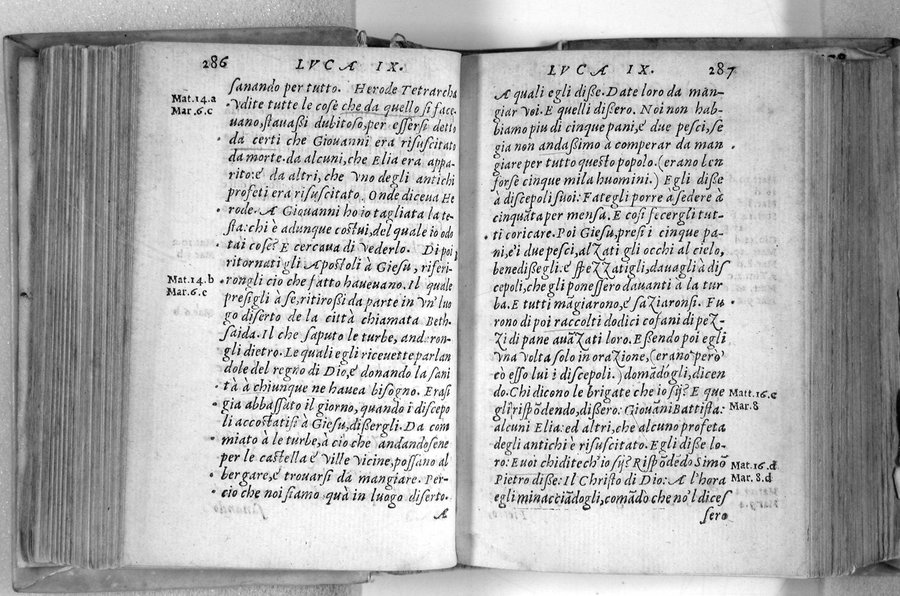 286
LVCA IX.
sanando per tutto. Herode Tetrarcha
Mat.14.a
Mar.6.c
vdite tutte le cose che da quello si face
uano, stauaßi dubitoso, per essersi detto
da certi che Giouanni era risuscitato
da morte. da alcuni, che Elia era appa-
rito: & da altri, che vno degli antichi
profeti era risuscitato. Onde diceua He
rode. A Giouanni ho io tagliata la te-
sta: chi è adunque costui, del quale io odo
tai cose? E cercaua di vederlo. Di poi
ritornati gli Apostoli à Giesu, riferi-
Mat.14.b
Mar.6.c
rongli cio che fatto haueuano. Il quale
presigli à se, ritiroßi da parte in vn' luo
go diserto de la città chiamata Beth-
saida. Il che saputo le turbe, andaron-
gli dietro. Le quali egli riceuette parlan
dole del regno di Dio, & donando la sani
tà à chiunque ne hauea bisogno. Eraßi
gia abbassato il giorno, quando i discepo
li accostatisi à Giesu, dißergli. Da com
miato à le turbe, à ciò che andandosene
per le castella & ville vicine, possano al
bergare, & trouarsi da mangiare. Per-
cio che noi siamo quà in luogo diserto.
A
LVCA IX.
287
A quali egli diße. Date loro da man-
giar voi. E quelli dißero. Noi non hab-
biamo piu di cinque pani, & due pesci, se
gia non andaßimo à comperar da man-
giare per tutto questo popolo. (erano ben
forse cinque mila huomini.) Egli diße
à discepoli suoi: Fategli porre à sedere à
cinquãta per mensa. E cosi fecergli tut-
ti coricare. Poi Giesu, presi i cinque pa-
ni, & i due pesci, alzati gli occhi al cielo,
benedißegli. & spezzatigli, dauagli à dis
cepoli, che gli ponessero dauanti à la tur
ba. E tutti mãgiarono, & saziaronsi. Fu
rono di poi raccolti dodici cofani di pez-
zi di pane auãzati loro. Eßendo poi egli
vna volta solo in orazione, (erano però
cõ esso lui i discepoli.) domãdogli, dicen
do. Chi dicono le brigate che io sij? E que
Matt.16.c
Mar.8
gli rispõdendo, dißero: Giouãni Battista:
alcuni Elia: ed altri, che alcuno profeta
degli antichi è risuscitato. Egli diße lo-
ro: E uoi chi dite ch'io sij? Rispõdẽdo Simõ
Mat.16.d
Mar.8.d
Pietro diße: Il Christo di Dio: A l'hora
egli minacciãdogli, comãdò che nõ'l dices
sero